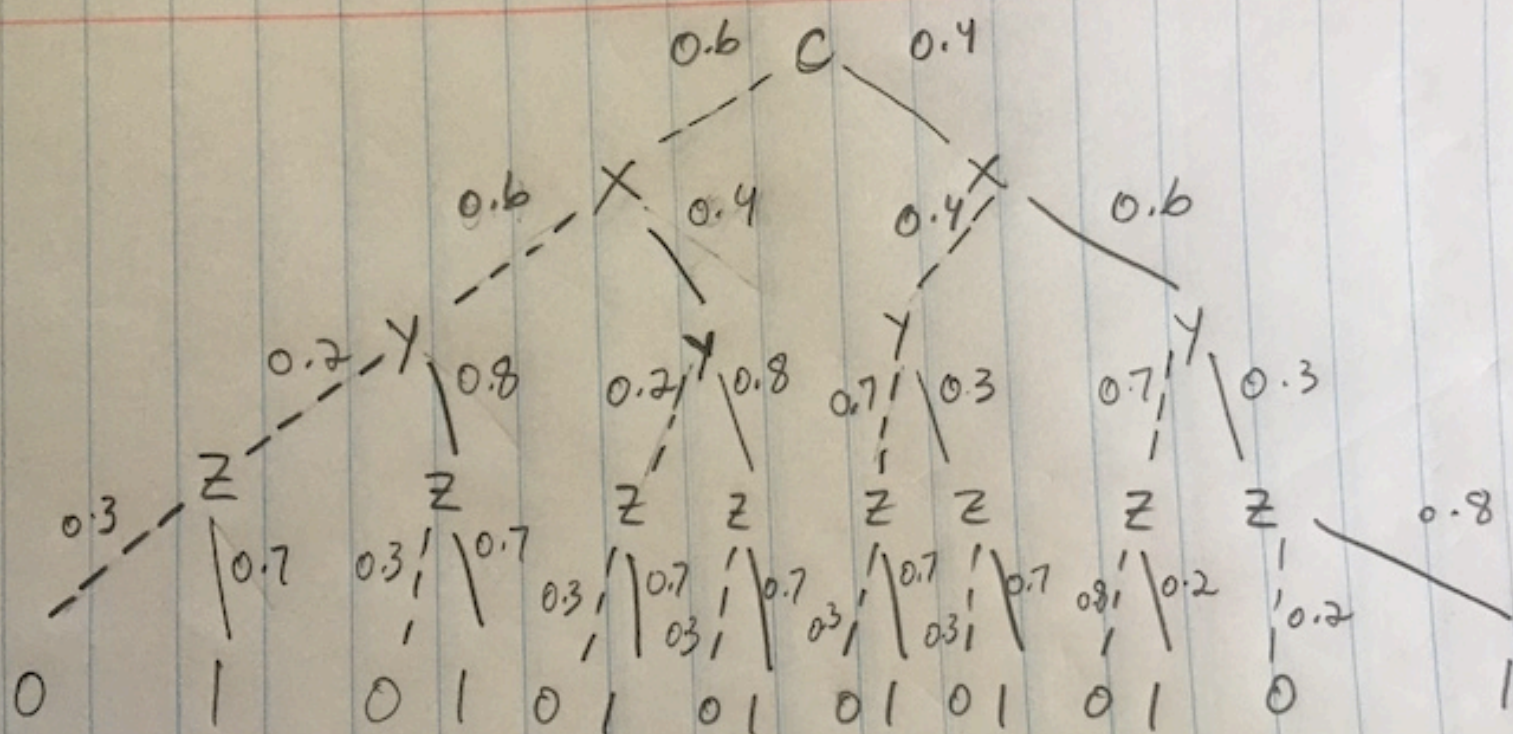 0.6 C 0.4
0.6 X 0.4 0.4 X 0.6
0.2 Y 0.8 0.2 Y 0.8 0.7 Y 0.3 0.7 Y 0.3
0.3 Z 0.7 0.3 Z 0.7 0.3 Z 0.7 0.3 Z 0.7 0.3 Z 0.7 0.3 Z 0.7 0.8 Z 0.2 Z 0.2 0.8
0 1 0 1 0 1 0 1 0 1 0 1 0 1 0 1